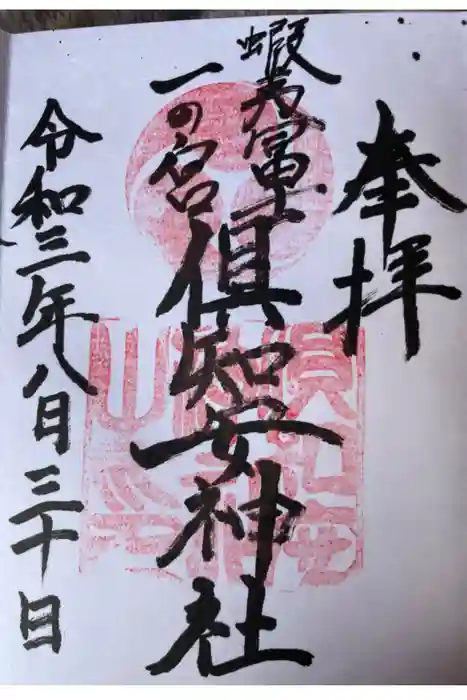 奉拝
蝦夷富士
一の宮
倶知安神社
令和三年八月三十日